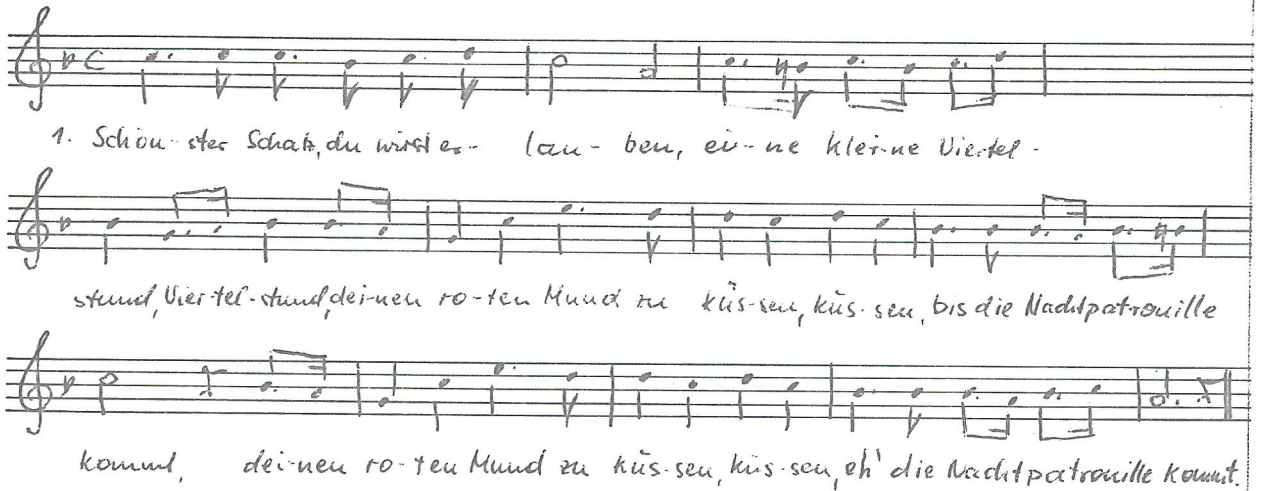 1. Schön-ster Schatz, du wirst er- lau-ben, ei-ne klei-ne Viertel-
stund, Vier-tel-stund, dei-nen ro-ten Mund zu küs-sen, küs-sen, bis die Nachtpatrouille
kommt, dei-nen ro-ten Mund zu küs-sen, küs-sen, eh' die Nachtpatrouille kommt.